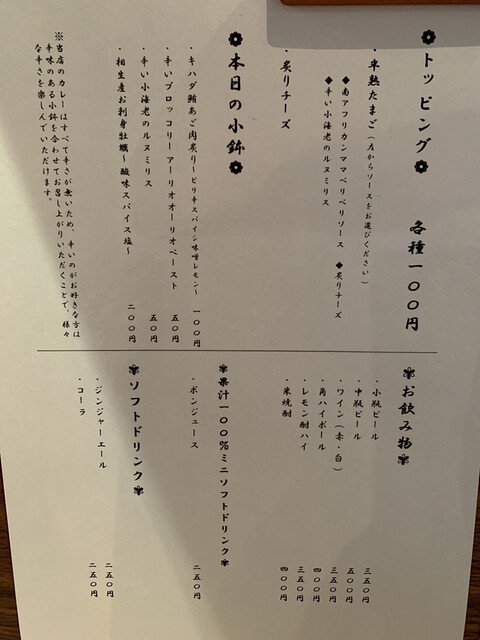 ❁トッピング❁　各種一〇〇円
・半熟たまご（左からソースをお選びください）
◆南アフリカンママペリペリソース　◆炙りチーズ
◆辛い小海老のルヌミリス
・炙りチーズ
❁本日の小鉢❁
・キハダ鮪あご肉炙り～ピリ辛スパイシ味噌レモン～　一〇〇円
・辛いブロッコリーアーリオオーリオペースト　五〇円
・辛い小海老のルヌミリス　五〇円
・相生産お刺身牡蠣～酸味スパイス塩～　二〇〇円
※当店のカレーはすべて辛さが無いため、辛いのがお好きな方は
辛味のある小鉢を合わせてお召し上がりいただくことで、様々
な辛さを楽しんでいただけます。
✾お飲み物✾
・小瓶ビール　三五〇円
・中瓶ビール　五〇〇円
・ワイン（赤・白）　三五〇円
・角ハイボール　四〇〇円
・レモン酎ハイ　三五〇円
・米焼酎　四〇〇円
✾果汁一〇〇％ミニソフトドリンク✾
・ポンジュース　二五〇円
✾ソフトドリンク✾
・ジンジャーエール　二五〇円
・コーラ　二五〇円